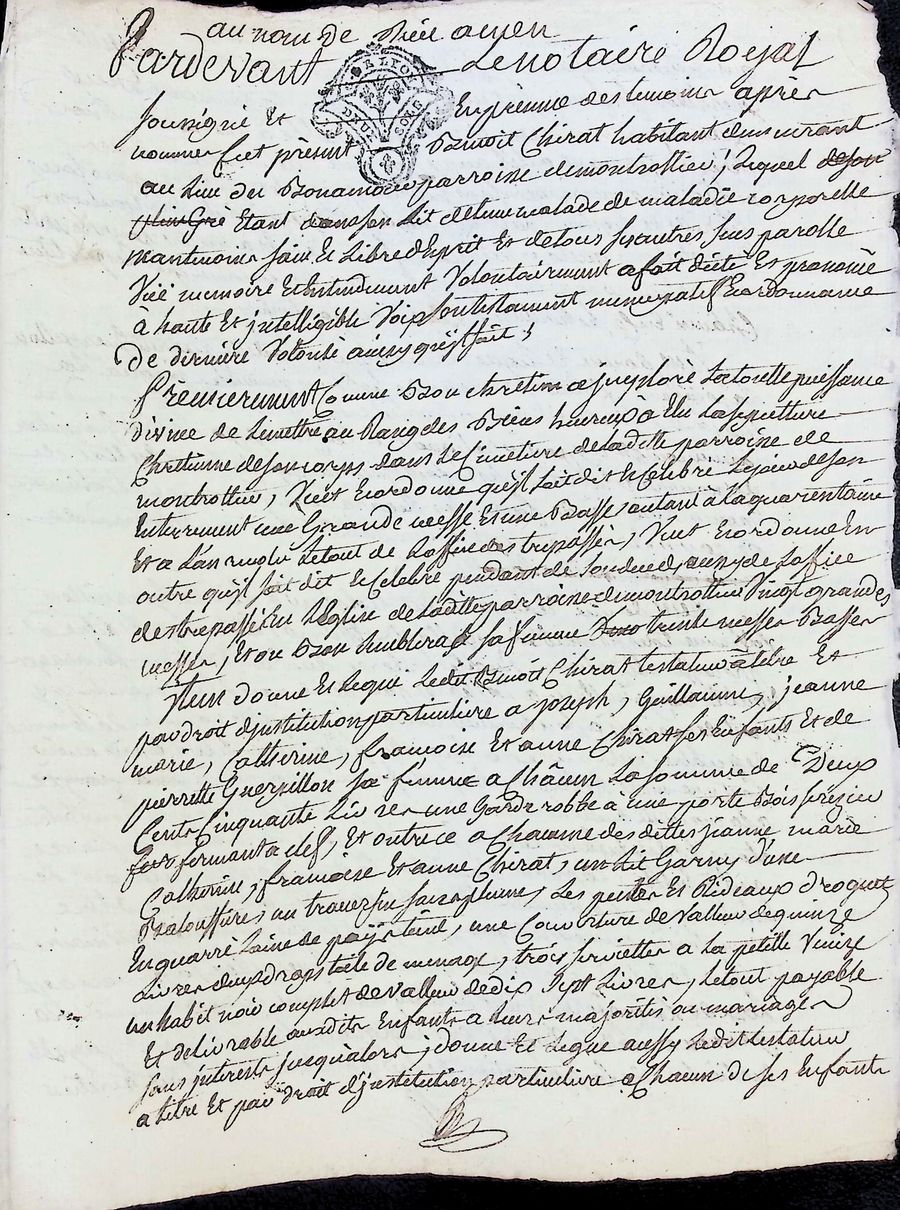 au nom de Dieu amen
Pardevant Le notaire Royal
soussigné et En presence des temoins après
nommes fut présent Benoit Chirat habitant demeurant
au lieu du parroisse de montrottier, Lequel de son
plein gré Etant dans son Lit detenu malade de maladie corporelle
neantmoins sain Et Libre d'Esprit Et de tous ses autres sens parolle
Vüe memoire Et Entendement Volontairement a fait dicté Et prononcé
à haute Et jntelligible Voix son testament nuncupatif Et ordonnance
De derniere Volonté ainsy qu'il suit ;
Premierement Comme Bon chretien a jmploré La toutte puissance
divine de Le mettre au Rang des Biens hureux à Elu La sepulture
Chretienne de son corps dans Le Cimetiere de La ditte parroisse de
montrottier, Veut Et ordonne qu'il soit dit Et Celebré Le jour de son
Enterrement une Grande messe Et une Basse, autant à La quarentaine
Et a L'an revolu Le tout de L'office des trepassés, Veut Et ordonne En
outre qu'il soit dit Et Celebré pendant de L'office
des trepassés En L'Eglise de La ditte parroisse de montrottier Vingt grandes
messes, Et ou Bon semblera à sa femme trente messes Basses
Jtem donne Et Legue Ledit Benoit Chirat testateur à titre Et
par droit d'jnstitution particuliere a joseph, Guillaume, jeanne
marie, Catherine, francoise Et anne Chirat ses Enfants Et de
pierrette Guerpillon sa femme a Châcun La somme de Deux
Cents Cinquante Livres une Garde robbe à une porte Bois serizier
fermant a clef, Et outre ce a Chacune des dittes jeanne marie
Catherine, francoise Et anne Chirat, un Lit Garny d'une
Balouffiere, un traversin sans plume, Les pentes Et Rideaux droguet
En quarré Laine de pays teint, une Couverture de Valleur de quinze
Livres deux draps toile de menage, trois serviettes a la petite Venize
un habit noir complet de Valleur de dix sept Livres, Le tout payable
Et delivrable auxdits Enfants a Leurs majorités ou mariages
sans jnterets jusqu'alors ; donne Et Legue aussy Ledit testateur
a titre Et par droit d'jnstitution particuliere a Chacun de ses Enfants